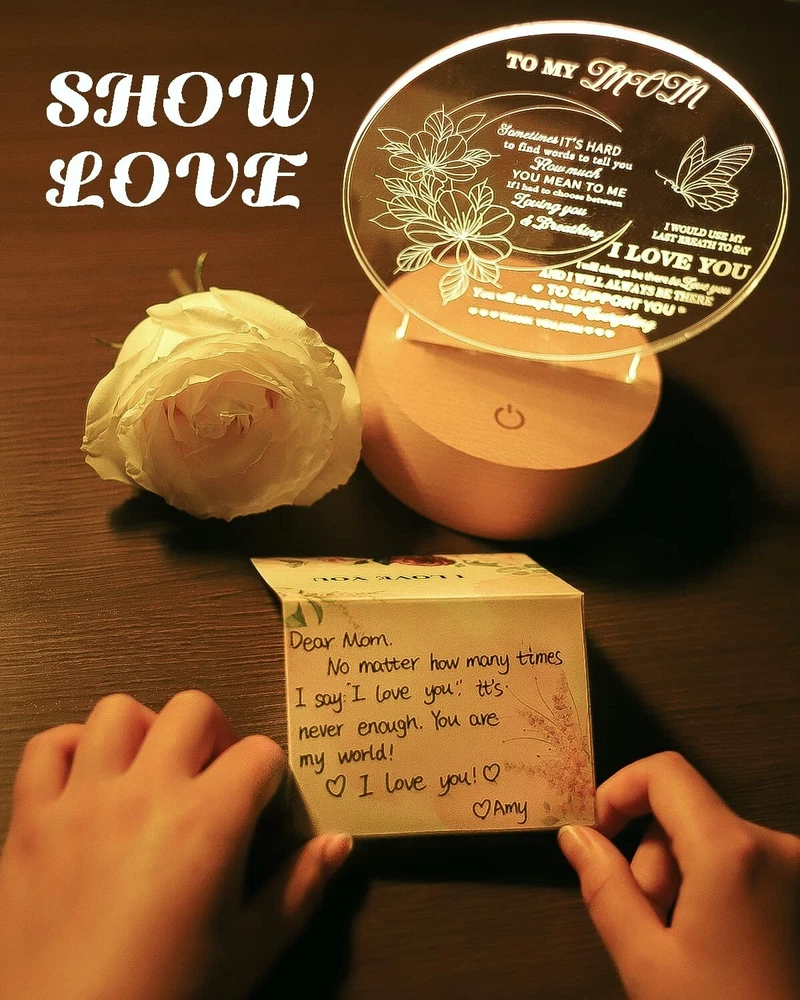 SHOW
LOVE
TO MY MOM
Sometimes IT'S HARD
to find words to tell you
How much
YOU MEAN TO ME
If I had to choose between
Loving you
& Breathing
I WOULD USE MY
LAST BREATH TO SAY
I LOVE YOU
I will always be there to Love you
AND I WILL ALWAYS BE THERE
♥ TO SUPPORT YOU ♥
You will always be my Everything
I LOVE YOU
Dear Mom.
No matter how many times
I say:"I love you", it's
never enough. You are
my world!
♡ I love you! ♡
♡Amy